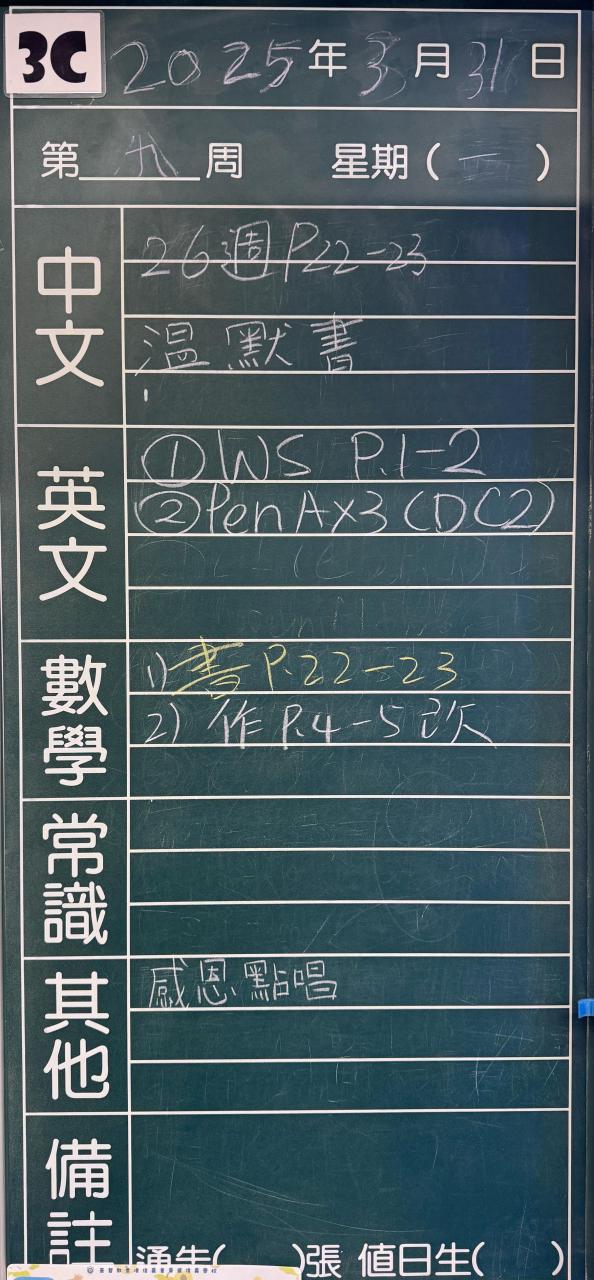 3C 2025年3月31日
第 周 星期(一)
中文
26週P22-23
溫默書
英文
①WS P.1-2
②PenAx3(DC2)
數學
1)書P.22-23
2)作P.4-5改
常識
其他
感恩點唱
備註
通告( )張 值日生( )